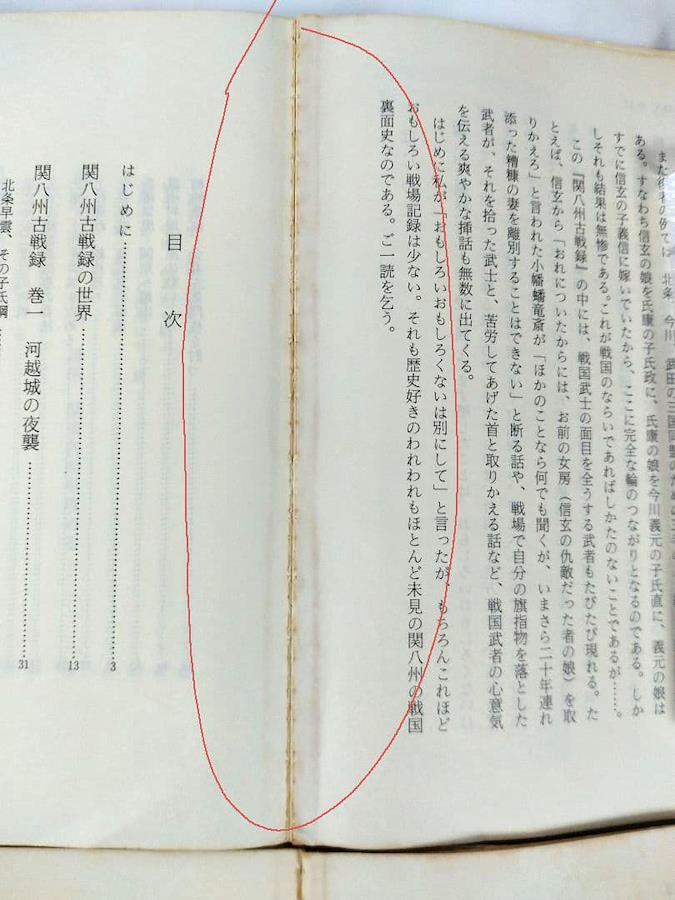 また複
北条 今川 武田の三国同盟のための
ある。すなわち信玄の娘を氏康の子氏政に、氏康の娘を今川義元の子氏直に、義元の娘は
すでに信玄の子義信に嫁いでいたから、ここに完全な輪のつながりとなるのである。しか
しそれも結果は無惨である。これが戦国のならいであればしかたのないことであるが……。
この『関八州古戦録』の中には、戦国武士の面目を全うする武者もたびたび現れる。た
とえば、信玄から「おれについたからには、お前の女房(信玄の仇敵だった者の娘)を取
りかえろ」と言われた小幡蟠竜斎が「ほかのことなら何でも聞くが、いまさら二十年連れ
添った糟糠の妻を離別することはできない」と断る話や、戦場で自分の旗指物を落とした
武者が、それを拾った武士と、苦労してあげた首と取りかえる話など、戦国武者の心意気
を伝える爽やかな挿話も無数に出てくる。
はじめに私が「おもしろいおもしろくないは別にして」と言ったが、もちろんこれほど
おもしろい戦場記録は少ない。それも歴史好きのわれわれもほとんど未見の関八州の戦国
裏面史なのである。ご一読を乞う。
目次
はじめに……………………3
関八州古戦録の世界……………………13
関八州古戦録 巻一 河越城の夜襲……………………31
北条早雲、その子氏綱……